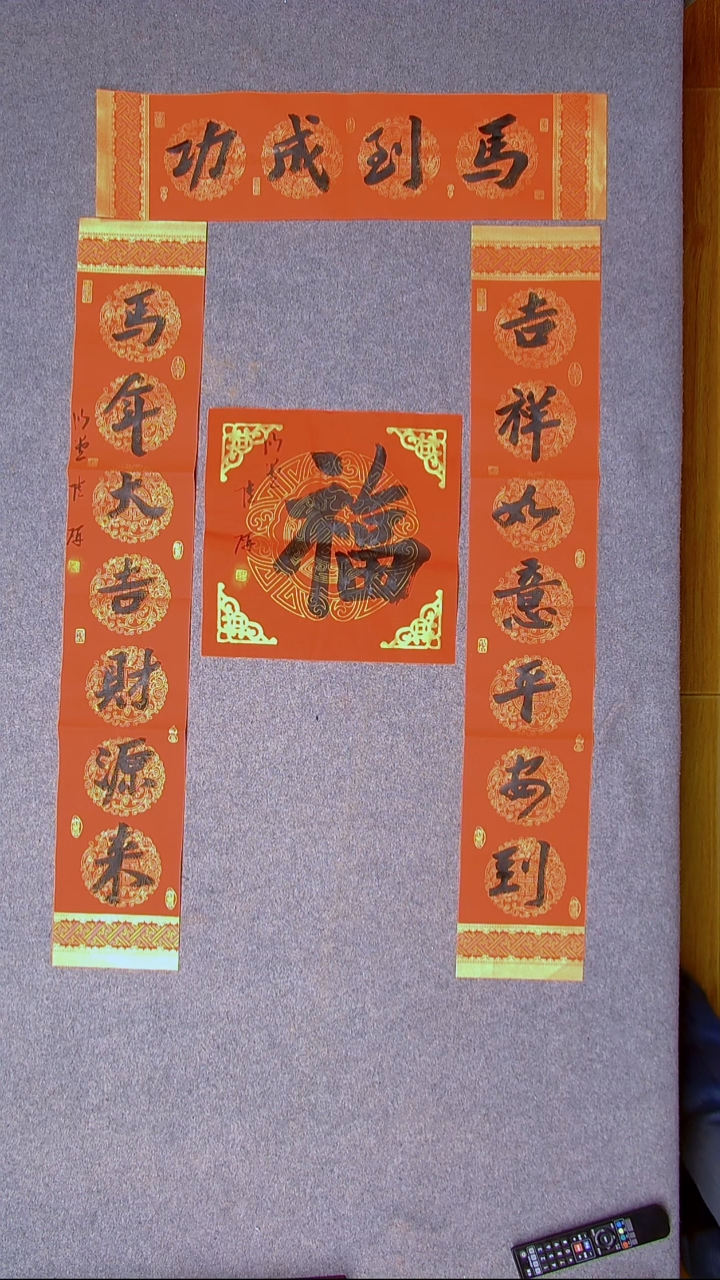 馬到成功
吉祥如意平安到
馬年大吉財源来
福